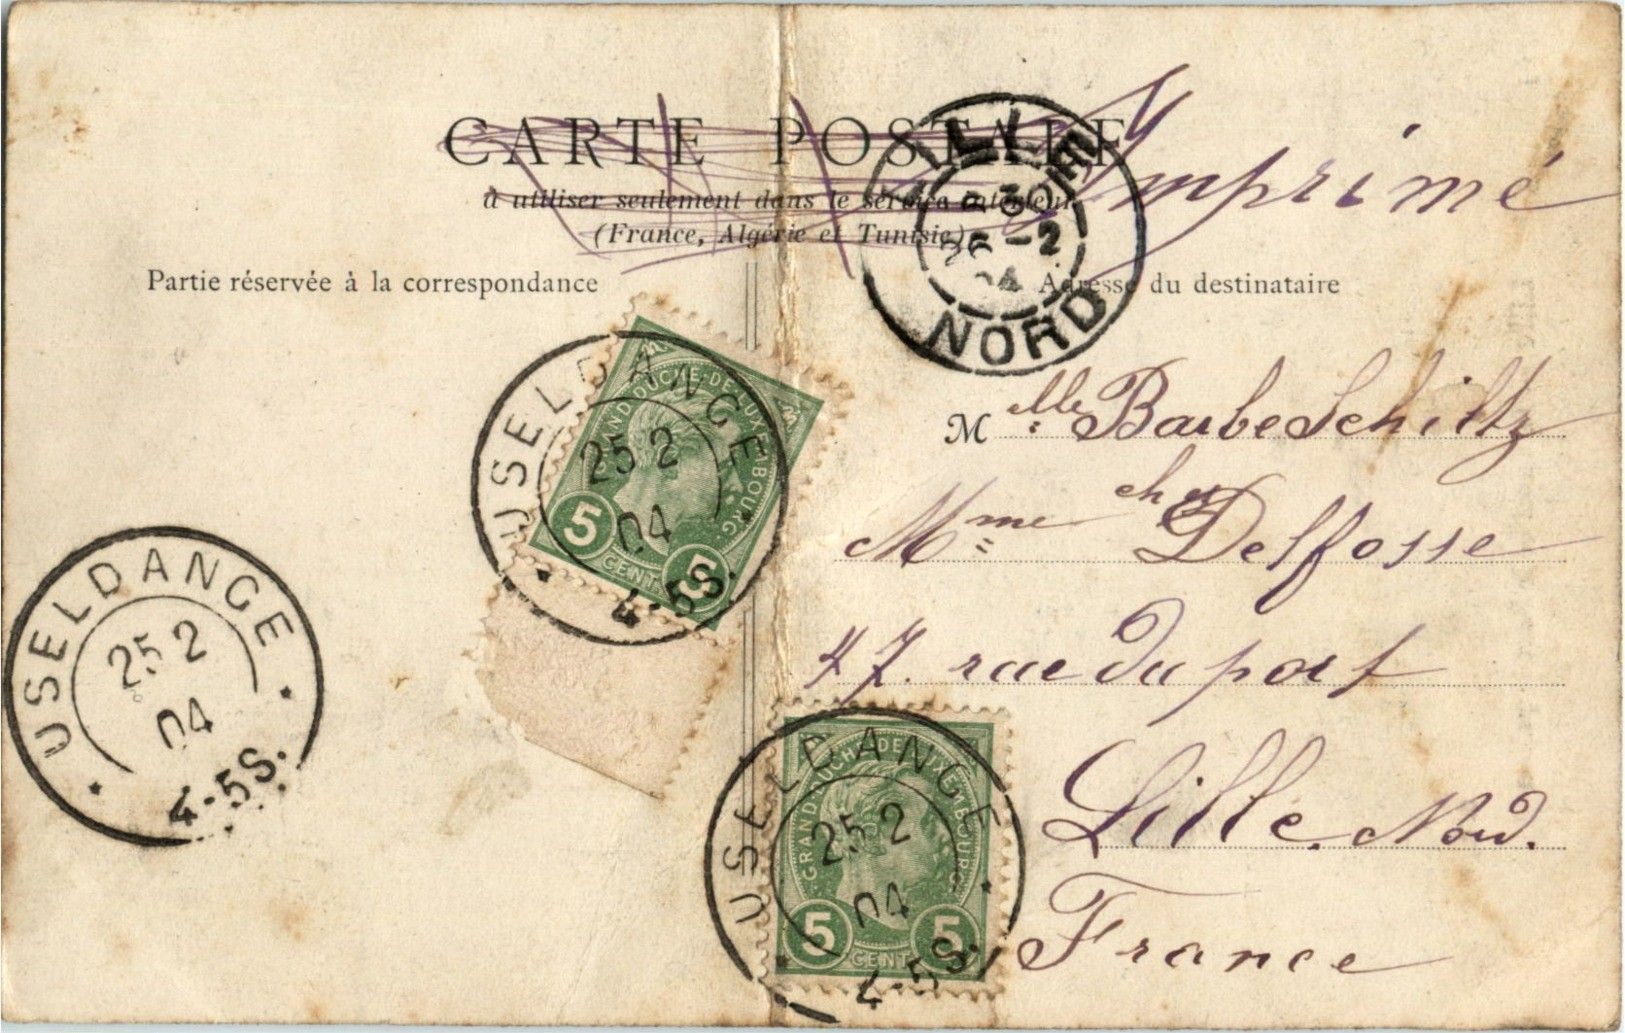 CARTE POSTALE
à utiliser seulement dans le service intérieur
(France, Algérie et Tunisie)
Imprimé
LILLE
26 -2
04
NORD
Partie réservée à la correspondance
Adresse du destinataire
M elle Barbe Schiltz
Mme Delfosse
47. rue du port
Lille. Nord.
France
USELDANGE
25 2
04
4-5S.
GRAND-DUCHÉ-DE-LUXEMBOURG
5 CENT 5
USELDANGE
25 2
04
4-5S.
USELDANGE
25 2
04
4-5S.
GRAND-DUCHÉ-DE-LUXEMBOURG
5 CENT 5